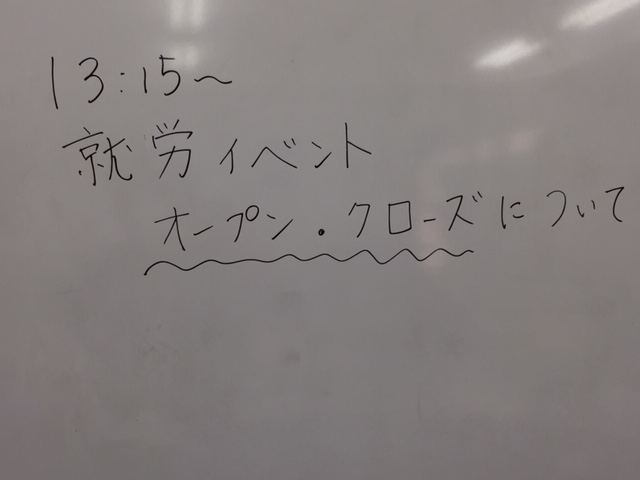 13:15～
就労イベント
オープン・クローズについて